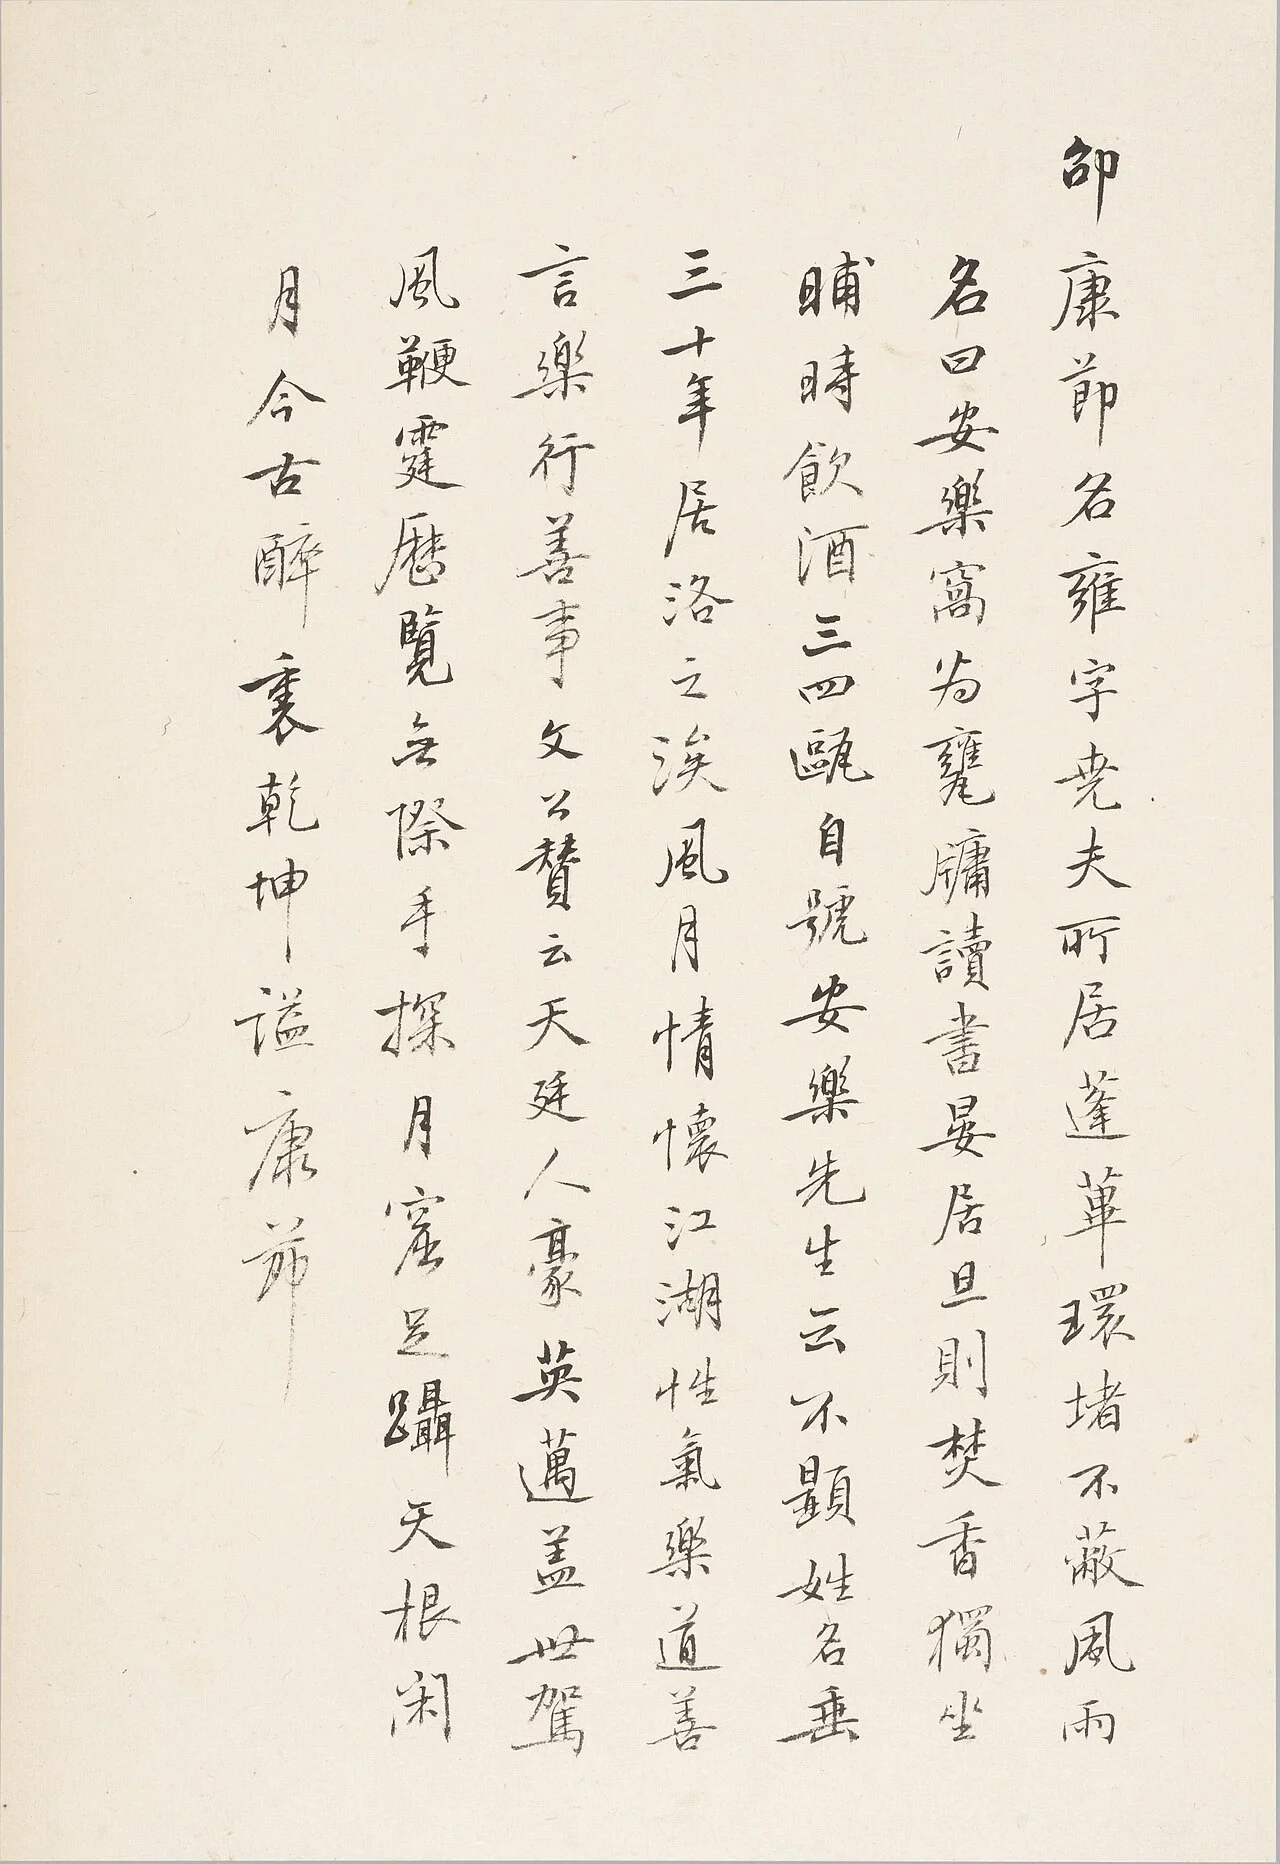 邵康節名雍字尭夫所居蓬蓽環堵不蔽風雨
名曰安樂窩为甕牖讀書晏居旦則焚香獨坐
晡時飲酒三四甌自號安樂先生云不顯姓名垂
三十年居洛之涘風月情懷江湖性氣樂道善
言樂行善事文公贊云天廷人豪英邁盖世駕
風鞭霆歷覽無際手探月窟足躡天根闲
月今古醉裏乾坤謚康節